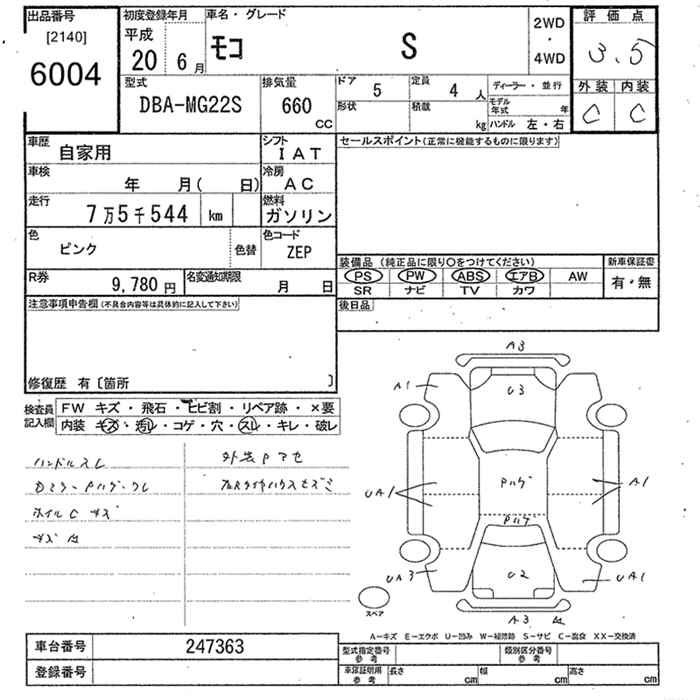 出品番号
[2140]
6004
初度登録年月
平成
20年 6月
車名・グレード
モコ S
2WD
・
4WD
評価点
3.5
外装 内装
C C
型式
DBA-MG22S
排気量
660
CC
ドア 5
定員 4 人
ディーラー・並行
形状
積載 kg
モデル年式 年
ハンドル 左・右
車歴
自家用
シフト
IAT
車検
年 月( 日)
冷房
AC
走行
7万5千544 km
燃料
ガソリン
色
ピンク
色替
色コード
ZEP
R券
9,780 円
名変通知期限
月 日
セールスポイント(正常に機能するものに限ります)
装備品 (純正品に限り○をつけてください)
新車保証書
PS PW ABS エアB AW
有・無
SR ナビ TV カワ
後日品
注意事項申告欄(不具合内容等は具体的に記入して下さい)
修復歴 有〔箇所 〕
検査員記入欄
FW キズ・飛石・ヒビ割・リペア跡・×要
内装 キズ・汚レ・コゲ・穴・スレ・キレ・破レ
ハンドルスレ
ホイルC キズ
外装
A3
A1
U3
UA1
Pハゲ
A1
Pハゲ
UA3
U2
UA1
A3
スペア
A-キズ E-エクボ U-凹み W-補修跡 S-サビ C-腐食 XX-交換済
車台番号
247363
登録番号
型式指定番号
参考
類別区分番号
参考
車庫証明用
参考
長さ cm
幅 cm
高さ cm